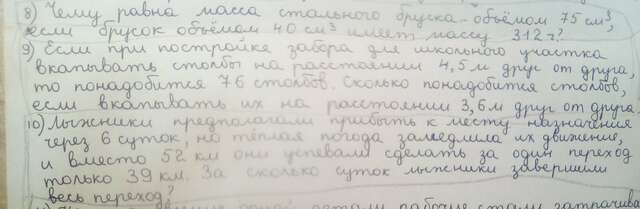 8) Чему равна масса стального бруска объёмом 75 см³,
если брусок объёмом 40 см³ имеет массу 312 г?
9) Если при постройке забора для школьного участка
вкапывать столбы на расстоянии 4,5 м друг от друга,
то понадобится 76 столбов. Сколько понадобится столбов,
если вкапывать их на расстоянии 3,6 м друг от друга.
10) Лыжники предполагали прибыть к месту назначения
через 6 суток, но тёплая погода замедлила их движение,
и вместо 52 км они успевали сделать за один переход
только 39 км. За сколько суток лыжники завершили
весь переход?
одной детали рабочие стали затрачива